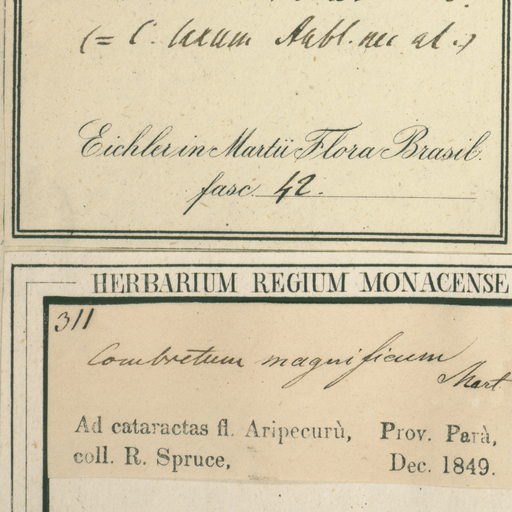 (= C. laxum Aubl. nec al.)
Eichler in Martii Flora Brasil.
fasc. 42.
HERBARIUM REGIUM MONACENSE
311
Combretum magnificum
Mart
Ad cataractas fl. Aripecurù, Prov. Parà,
coll. R. Spruce, Dec. 1849.